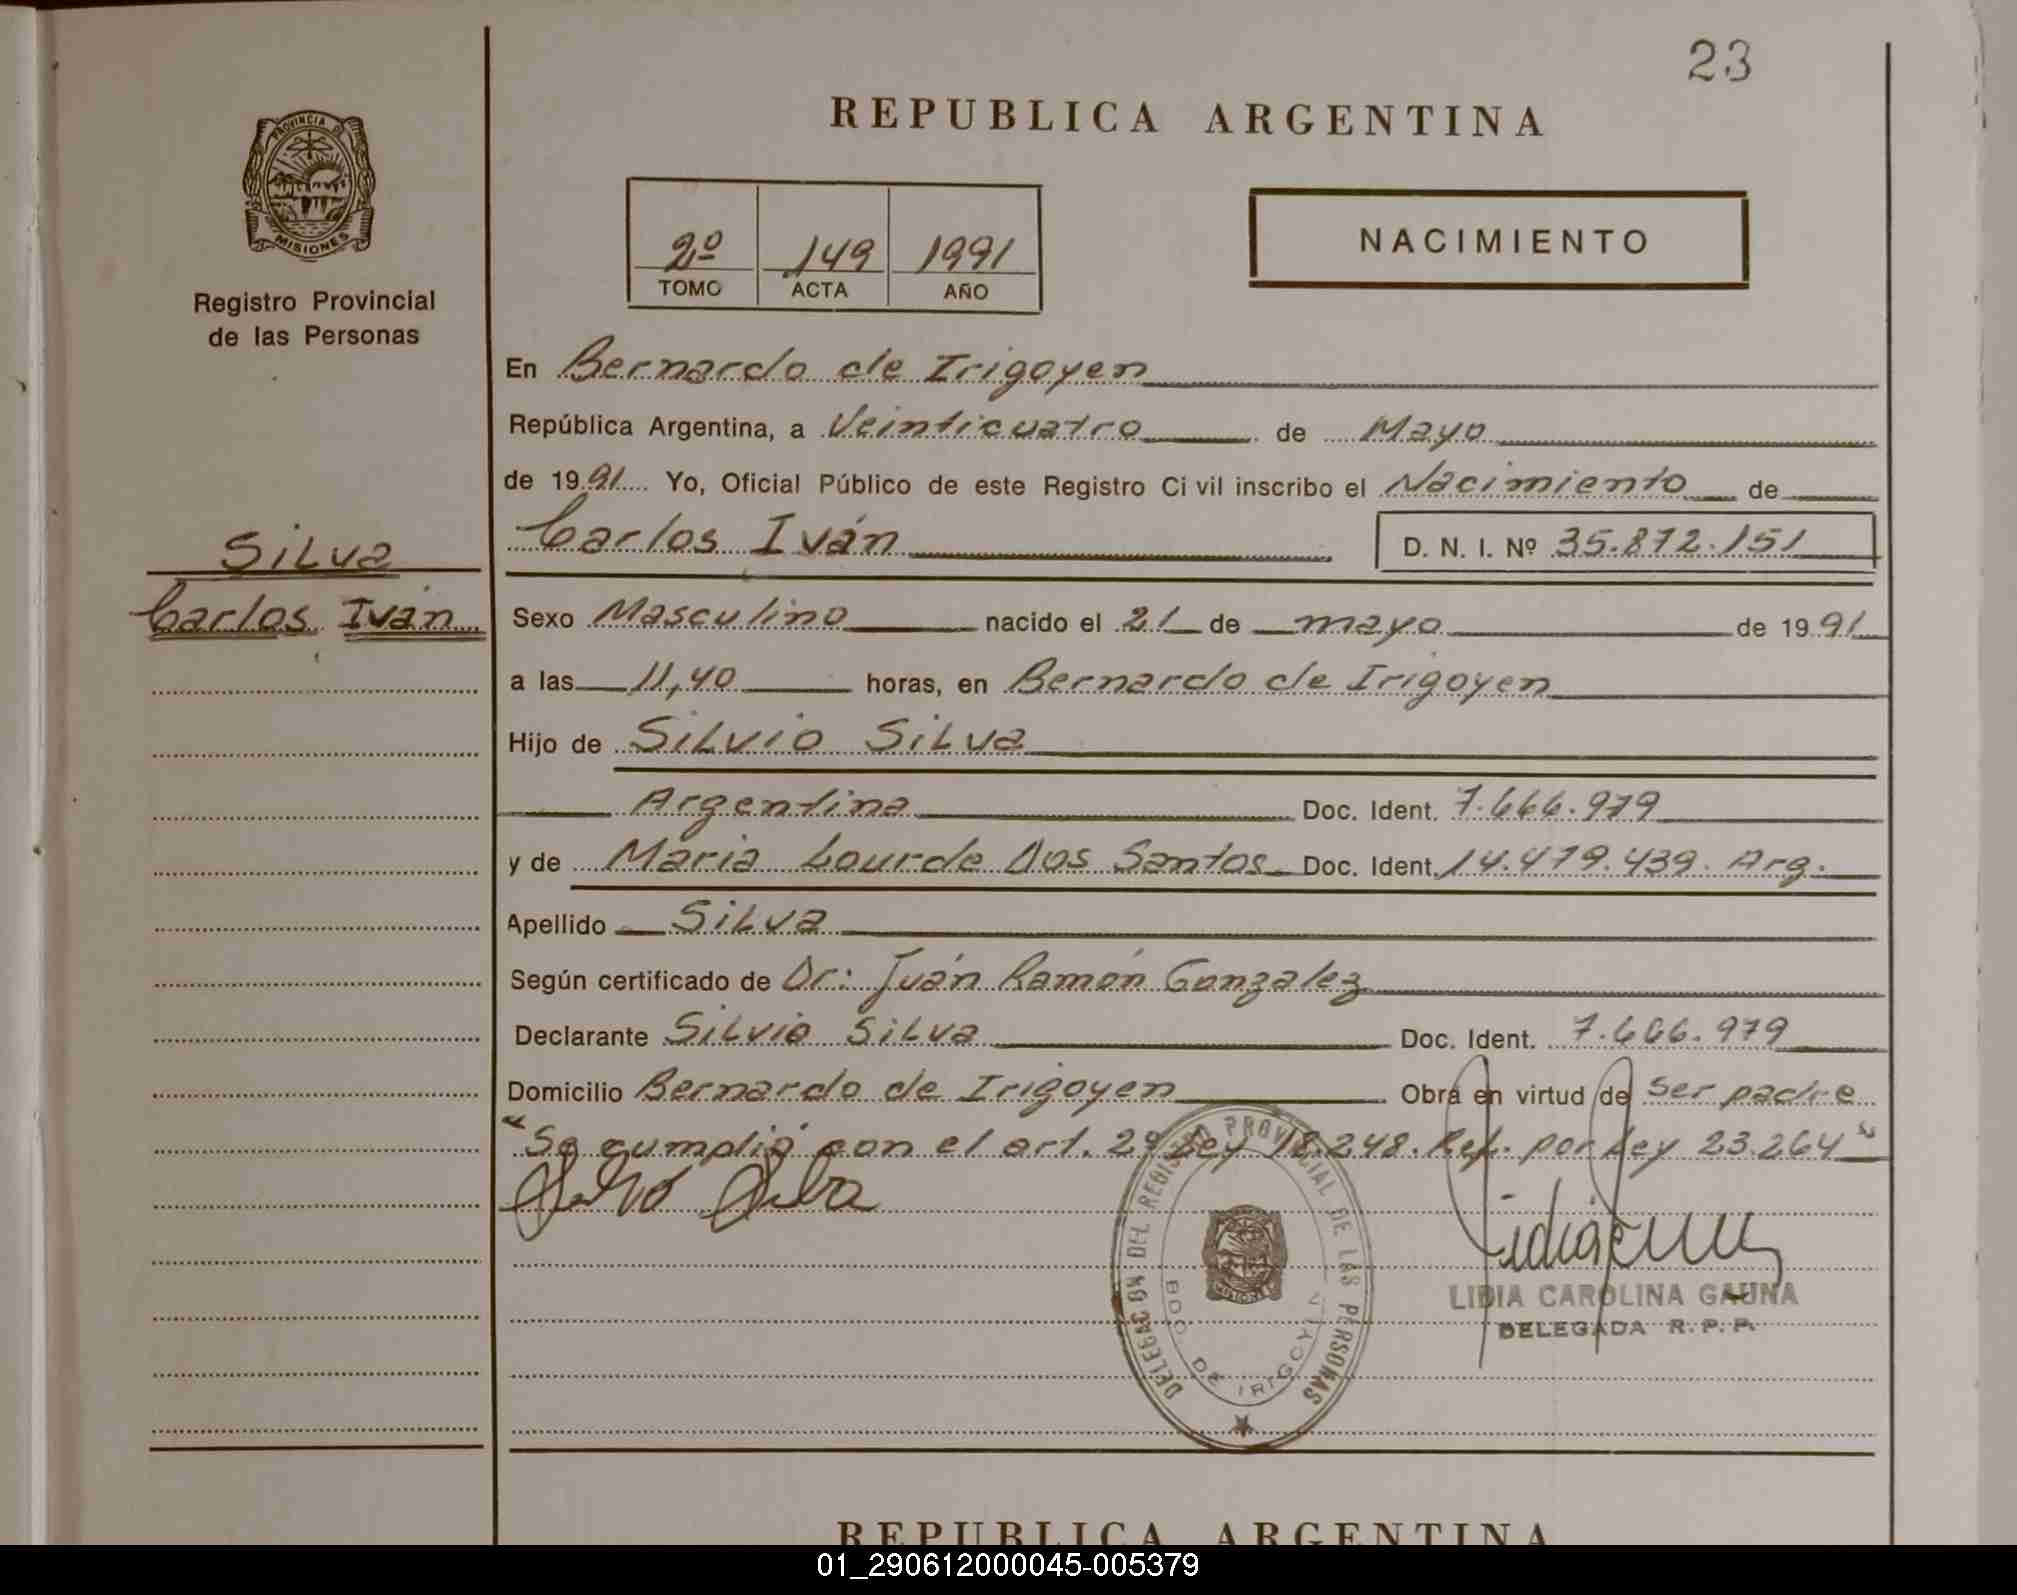 23
REPUBLICA ARGENTINA
PROVINCIA DE
MISIONES
Registro Provincial
de las Personas
2º 149 1991
TOMO ACTA AÑO
NACIMIENTO
En Bernardo de Irigoyen
República Argentina, a Veinticuatro de Mayo
de 1991 Yo, Oficial Público de este Registro Civil inscribo el Nacimiento de
Carlos Iván D. N. I. Nº 35.872.151
Silva
Carlos Iván
Sexo Masculino nacido el 21 de mayo de 1991
a las 11,40 horas, en Bernardo de Irigoyen
Hijo de Silvio Silva
Argentina Doc. Ident. 7.666.979
y de Maria Lourde Dos Santos Doc. Ident. 14.479.439. Arg.
Apellido Silva
Según certificado de Dr: Juán Ramón Gonzalez
Declarante Silvio Silva Doc. Ident. 7.666.979
Domicilio Bernardo de Irigoyen Obra en virtud de Ser padre
"Se cumplió con el art. 29 Ley 18.248. Ref. por Ley 23.264"
Silvio Silva
DELEGACION DEL REGISTRO PROVINCIAL DE LAS PERSONAS
MISIONES
BDO. DE IRIGOYEN
LIDIA CAROLINA GAUNA
DELEGADA R. P. P.
REPUBLICA ARGENTINA
01_290612000045-005379